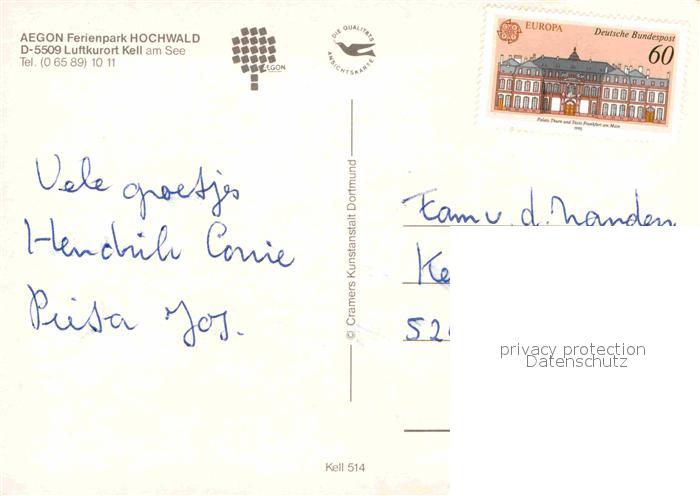 AEGON Ferienpark HOCHWALD
D-5509 Luftkurort Kell am See
Tel. (0 65 89) 10 11
AEGON
DIE QUALITÄTS
ANSICHTSKARTE
EUROPA
Deutsche Bundespost
60
Palais Thurn und Taxis Frankfurt am Main
1990
Vele groetjes
Hendrik Corrie
Pieta Jos.
© Cramers Kunstanstalt Dortmund
Fam v. d.
Ke
52
privacy protection
Datenschutz
Kell 514